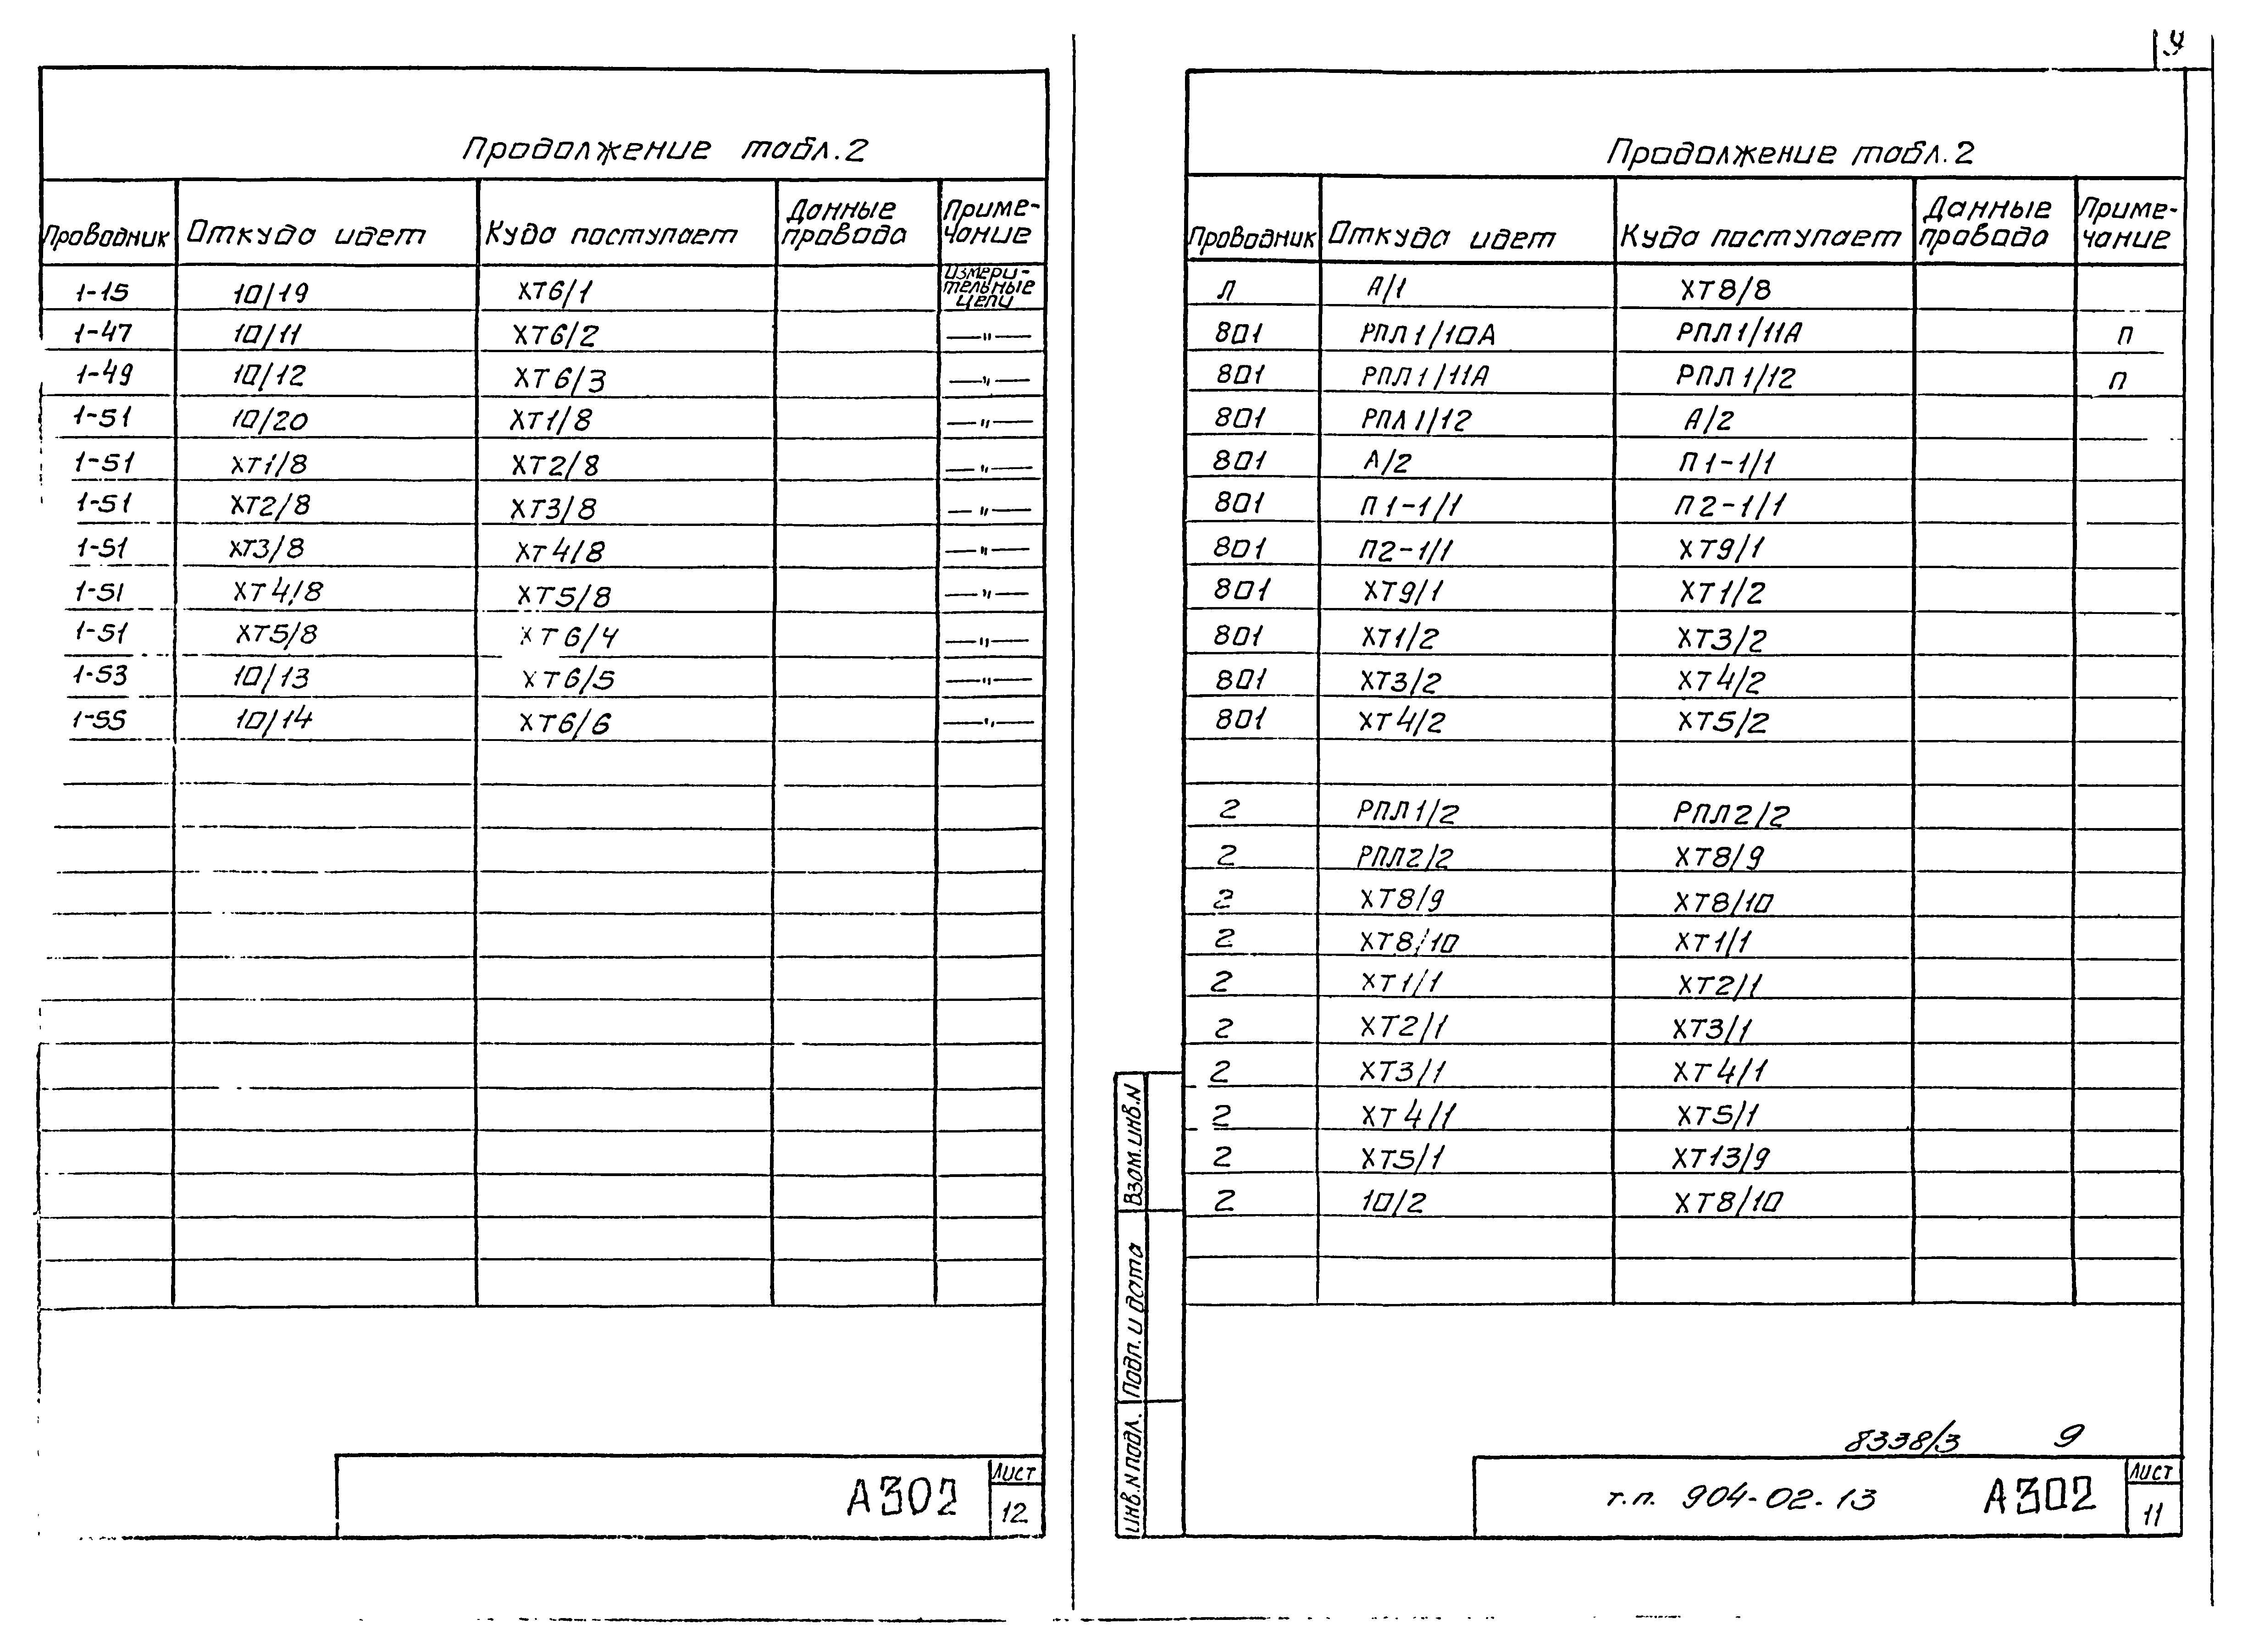 Продолжение табл.2
Проводник Откуда идет Куда поступает Данные провода Приме-чание
1-15 10/19 ХТ6/1 Измери-тельные цепи
1-47 10/11 ХТ6/2 —"—
1-49 10/12 ХТ6/3 —"—
1-51 10/20 ХТ1/8 —"—
1-51 ХТ1/8 ХТ2/8 —"—
1-51 ХТ2/8 ХТ3/8 —"—
1-51 ХТ3/8 ХТ4/8 —"—
1-51 ХТ4/8 ХТ5/8 —"—
1-51 ХТ5/8 ХТ6/4 —"—
1-53 10/13 ХТ6/5 —"—
1-55 10/14 ХТ6/6 —"—
А302
Лист
12
9
Продолжение табл.2
Проводник Откуда идет Куда поступает Данные провода Приме-чание
Л А/1 ХТ8/8
801 РПЛ1/10А РПЛ1/11А П
801 РПЛ1/11А РПЛ1/12 П
801 РПЛ1/12 А/2
801 А/2 П1-1/1
801 П1-1/1 П2-1/1
801 П2-1/1 ХТ9/1
801 ХТ9/1 ХТ1/2
801 ХТ1/2 ХТ3/2
801 ХТ3/2 ХТ4/2
801 ХТ4/2 ХТ5/2
2 РПЛ1/2 РПЛ2/2
2 РПЛ2/2 ХТ8/9
2 ХТ8/9 ХТ8/10
2 ХТ8/10 ХТ1/1
2 ХТ1/1 ХТ2/1
2 ХТ2/1 ХТ3/1
2 ХТ3/1 ХТ4/1
2 ХТ4/1 ХТ5/1
2 ХТ5/1 ХТ13/9
2 10/2 ХТ8/10
Взам.инв.N
Подп. и дата
Инв.N подл.
8338/3 9
т.п. 904-02-13 А302
Лист
11